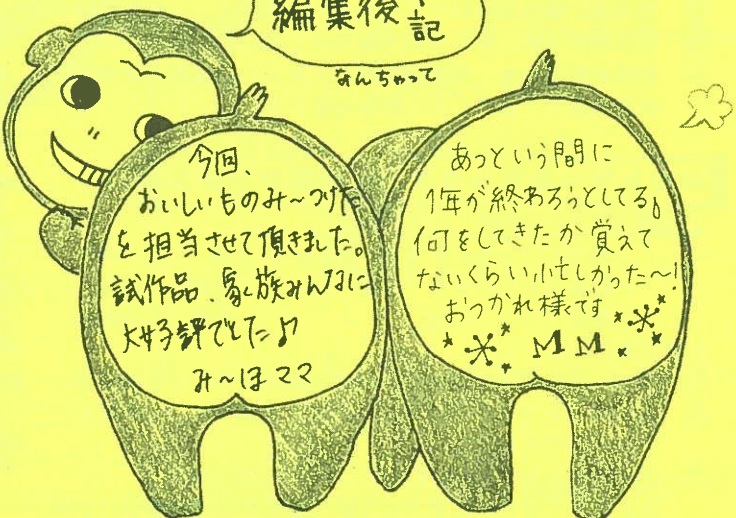 編集後記
なんちゃって
今回、
おいしいものみ〜つけた
を担当させて頂きました。
試作品、家族みんなに
大好評でした♪
み〜ほママ
あっという間に
1年が終わろうとしてる。
何をしてきたか覚えて
ないくらい忙しかった〜!
おつかれ様です
MM